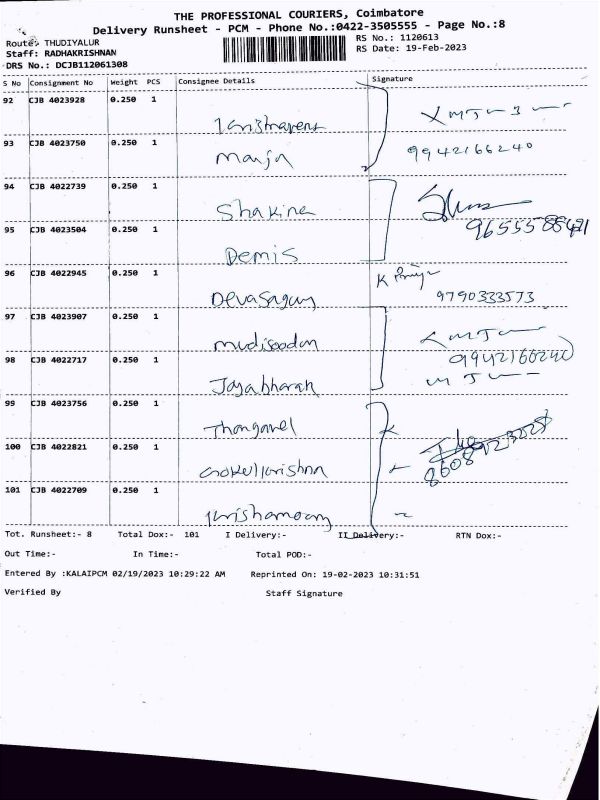 THE PROFESSIONAL COURIERS, Coimbatore
Delivery Runsheet - PCM - Phone No.:0422-3505555 - Page No.:8
Route: THUDIYALUR
RS No.: 1120613
Staff: RADHAKRISHNAN
RS Date: 19-Feb-2023
DRS No.: DCJB112061308
S No Consignment No Weight PCS Consignee Details Signature
92 CJB 4023928 0.250 1
93 CJB 4023750 0.250 1 9942166240
94 CJB 4022739 0.250 1
Shakina
95 CJB 4023504 0.250 1
Demis
96 CJB 4022945 0.250 1
Devasagay 9790333573
97 CJB 4023907 0.250 1
9942166240
98 CJB 4022717 0.250 1
Jayabharath
99 CJB 4023756 0.250 1
Thangavel
100 CJB 4022821 0.250 1
101 CJB 4022709 0.250 1
Tot. Runsheet:- 8 Total Dox:- 101 I Delivery:- II Delivery:- RTN Dox:-
Out Time:- In Time:- Total POD:-
Entered By :KALAIPCM 02/19/2023 10:29:22 AM Reprinted On: 19-02-2023 10:31:51
Verified By Staff Signature